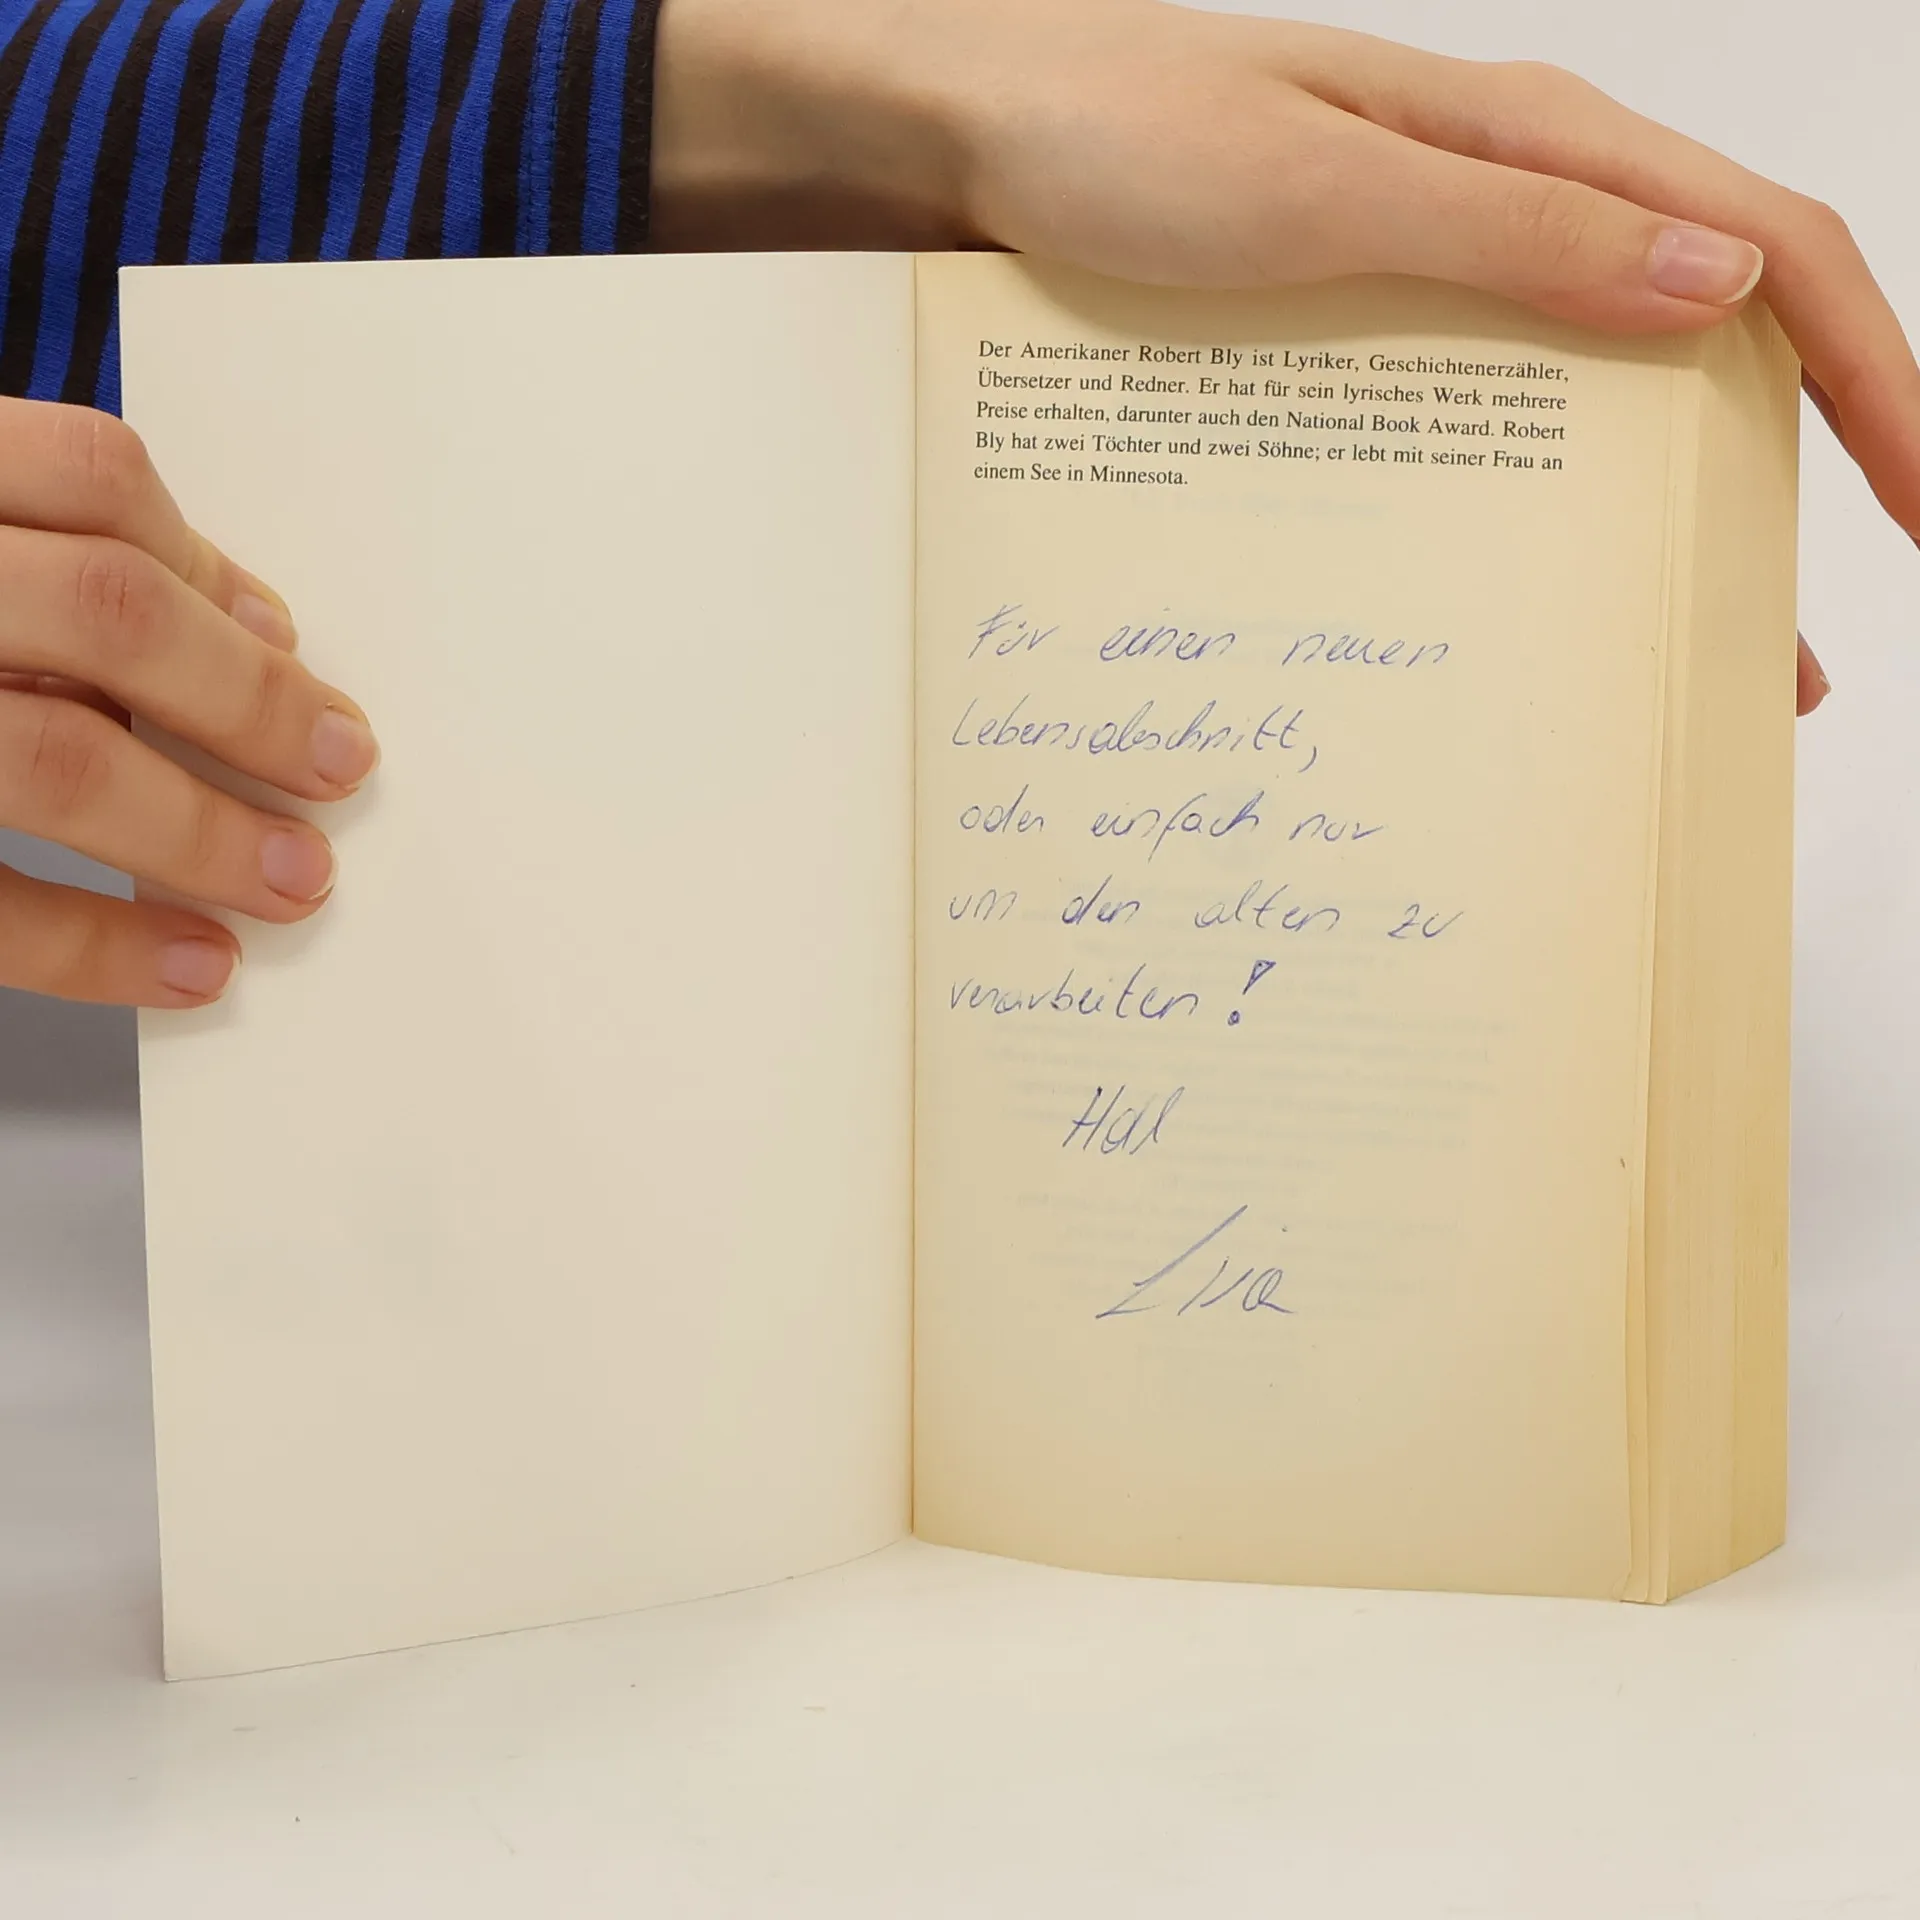 Der Amerikaner Robert Bly ist Lyriker, Geschichtenerzähler,
Übersetzer und Redner. Er hat für sein lyrisches Werk mehrere
Preise erhalten, darunter auch den National Book Award. Robert
Bly hat zwei Töchter und zwei Söhne; er lebt mit seiner Frau an
einem See in Minnesota.
Für einen neuen
Lebensabschnitt,
oder einfach nur
um den alten zu
verarbeiten!